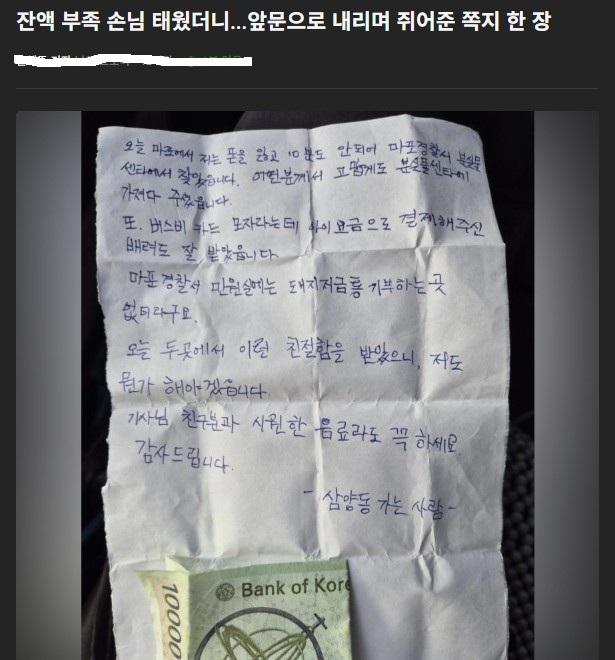 잔액 부족 손님 태웠더니...앞문으로 내리며 쥐어준 쪽지 한 장
오늘 마포에서 저는 폰을 잃고 10분도 안되어 마포경찰서 분실물
센타에서 찾았읍니다. 어떤분께서 고맙게도 분실물센타에
가져다 주셨읍니다.
또. 버스비 카드 모자라는데 아이요금으로 결제해주신
배려도 잘 받았읍니다
마포경찰서 민원실에는 돼지저금통 기부하는 곳
없더라구요.
오늘 두곳에서 이런 친절함을 받았으니, 저도
뭔가 해야겠읍니다.
기사님 친구분과 시원한 음료라도 꼭 하세요
감사드립니다.
- 삼양동 가는 사람 -
10000
Bank of Kore